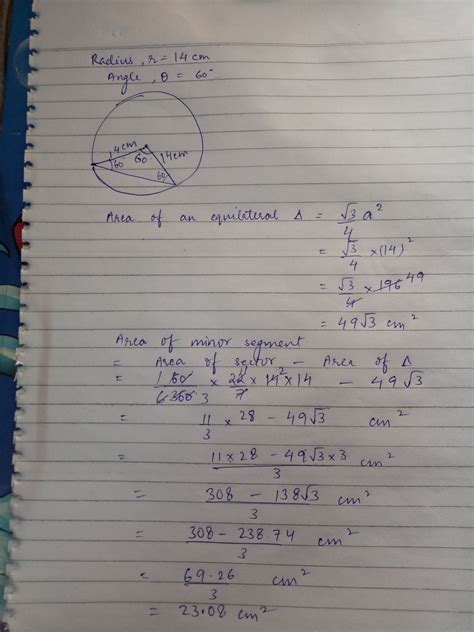 Radius, r = 14 cm
Angle, θ = 60°
14cm
60°
60°
14cm
60°
Area of an equilateral Δ = √3/4 a²
= √3/4 × (14)²
= √3/4 × 196 49
= 49√3 cm²
Area of minor segment
= Area of sector - Area of Δ
= 1 60/6 360 3 × 22 11/7 × 14 2 × 14 - 49√3
= 11/3 × 28 - 49√3 cm²
= 11×28 - 49√3×3/3 cm²
= 308 - 138√3/3 cm²
= 308 - 238.74/3 cm²
= 69.26/3 cm²
= 23.08 cm²